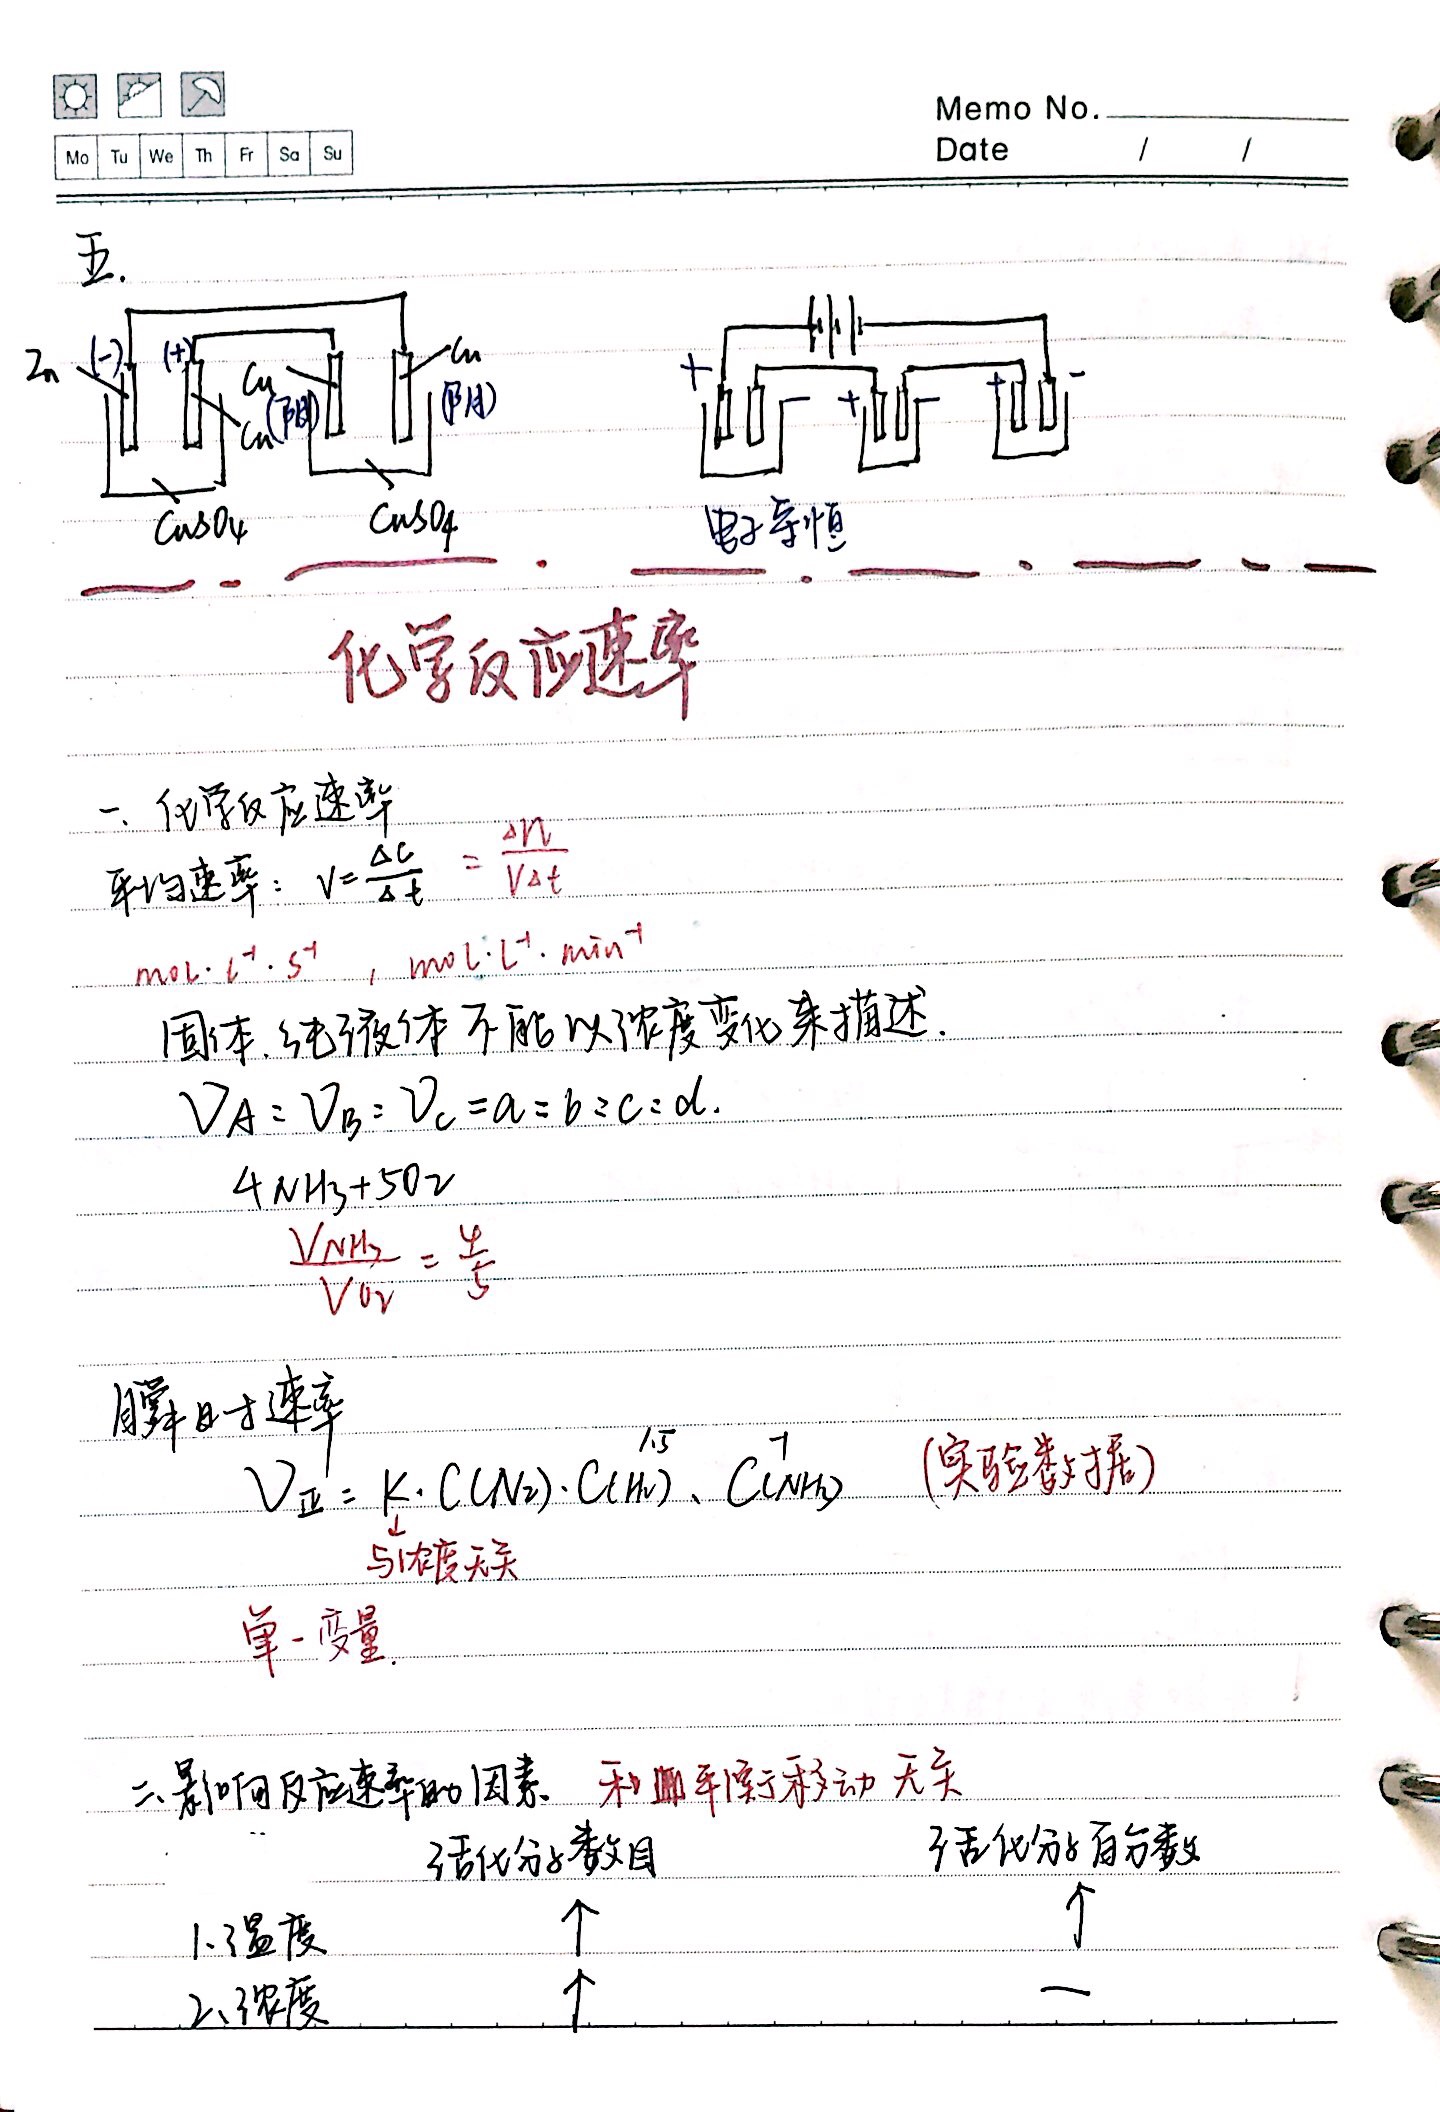 Memo No.
Date / /
Mo Tu We Th Fr Sa Su
五.
Zn (-) (+) Cu Cu (阳) Cu (阴)
CuSO4 CuSO4
+ - + - + -
电子守恒
化学反应速率
一、化学反应速率
平均速率: V=Δc/Δt =Δn/VΔt
mol·L⁻¹·s⁻¹ , mol·L⁻¹·min⁻¹
固体.纯液体不能以浓度变化来描述.
VA:VB:VC=a:b:c:d.
4NH3+5O2
VNH3/VO2 = 4/5
瞬时速率
V正=K·C(N2)·C(H2)^1.5、C(NH3)^-1 (实验数据)
↓
与浓度无关
单一变量.
二、影响反应速率的因素. 和平衡移动无关
活化分子数目 活化分子百分数
1、温度 ↑ ↑
2、浓度 ↑ —